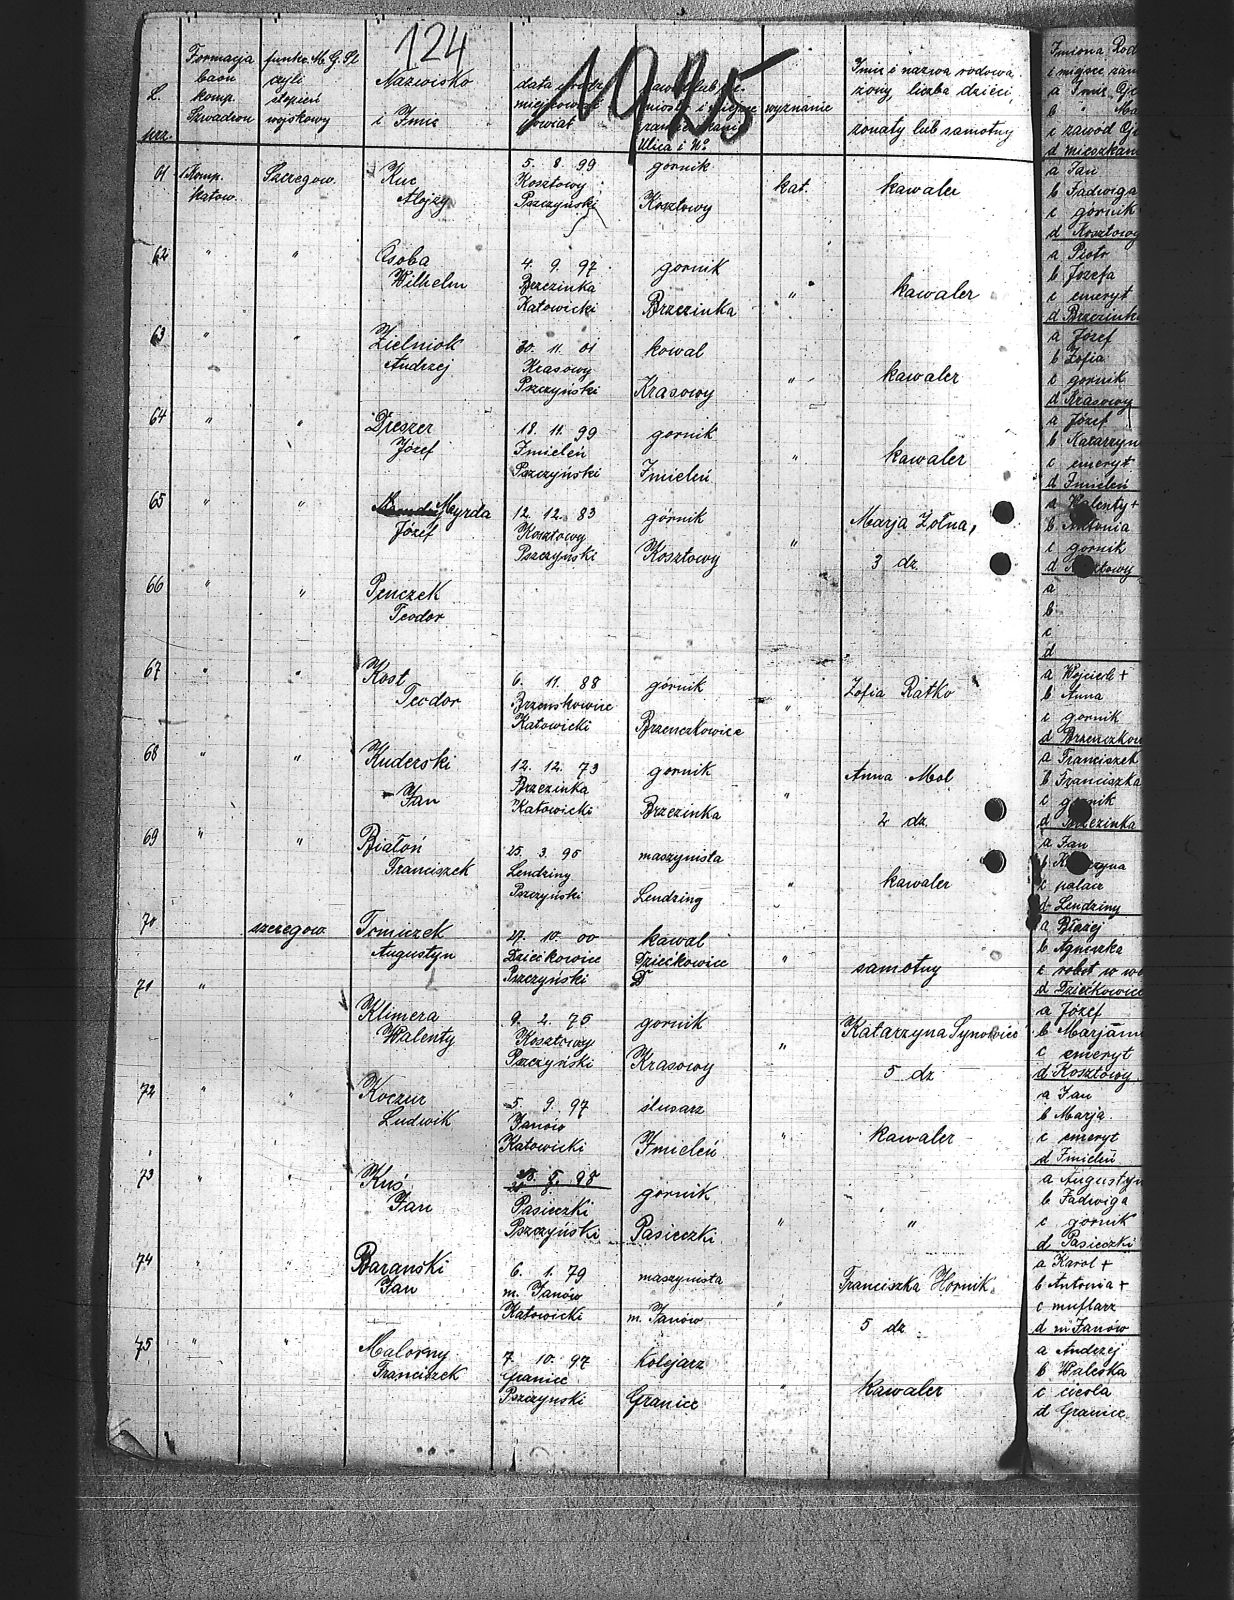 124
1925
L. prz.
Formacja baon komp. Szwadron
funkc. M.G. Pl czyli stopień wojskowy
Nazwisko i Imię
data urodz. miejscowość powiat
zawód lub
Ulica i No
wyznanie
Imię i nazwa rodowa żony, liczba dzieci, żonaty lub samotny
Imiona Rod
i miejsce zam
a Imię Ojc
b " Ma
c zawód Ojc
d mieszkan
61 Komp. Katow. Szeregow. Kuc Alojzy 5. 8. 99 Kosztowy Pszczyński górnik Kosztowy kat. kawaler
a Jan
b Jadwiga
c górnik
d Kosztowy
62 " " Osoba Wilhelm 4. 9. 97 Brzezinka Katowicki gornik Brzezinka " kawaler
a Piotr
b Józefa
c emeryt
d Brzezinka
63 " " Zielniok Andrzej 30. 11. 01 Krasowy Pszczyński kowal Krasowy " kawaler
a Józef
b Zofia
c gornik
d Krasowy
64 " " Dreszer Józef 18. 11. 99 Imieleń Pszczyński gornik Imieleń " kawaler
a Józef
b Katarzyn
c emeryt
d Imieleń
65 " " Meyrda Józef 12. 12. 83 Kosztowy Pszczyński górnik Kosztowy " Marja Żołna, 3 dz.
a Walenty +
b Antonia
c gornik
d Kosztowy
66 " " Penczek Teodor
a
b
c
d
67 " " Kost Teodor 6. 11. 88 Brzenskowice Katowicki górnik Brzenczkowice " Zofia Ratko
a Wojcieh +
b Anna
c gornik
d Brzenczkow
68 " " Kuderski Jan 12. 12. 73 Brzezinka Katowicki gornik Brzezinka " Anna Mol 2 dz.
a Franciszek
b Franciszka
c gornik
d Brzezinka
69 " " Białoń Franciszek 25. 3. 95 Lendziny Pszczyński maszynista Lendziny " kawaler
a Jan
c palacz
d Lendziny
70 szeregow. Tomiczek Augustyn 27. 10. 00 Dziećkowice Pszczyński kawal Dziećkowice D " samotny
a Błażej
b Agniszka
c robot w wo
d Dziećkowice
71 " Klimera Walenty 9. 2. 75 Kosztowy Pszczyński gornik Krasowy " Katarzyna Synowiec 5 dz
a Józef
b Marjann
c emeryt
d Kosztowy
72 " " Koczur Ludwik 5. 9. 97 Janów Katowicki ślusarz Imieleń " kawaler
a Jan
b Marja.
c emeryt
d Imieleń
73 " " Kuś Jan 28. 5. 95 Pasieczki Pszczyński gornik Pasieczki " "
a Augustyn
b Jadwiga
c gornik
d Pasieczki
74 " " Baranski Jan 6. 1. 79 m. Janów Katowicki maszynista m. Janów " Franciszka Hornik. 5 dz
a Karol +
b Antonia +
c muflarz
d m Janów
75 " " Malorny Franciszek 7. 10. 97 Granice Pszczynski Kolejarz Granice " Kawaler
a Andrzej
b Waleska
c cieśla
d Granice.